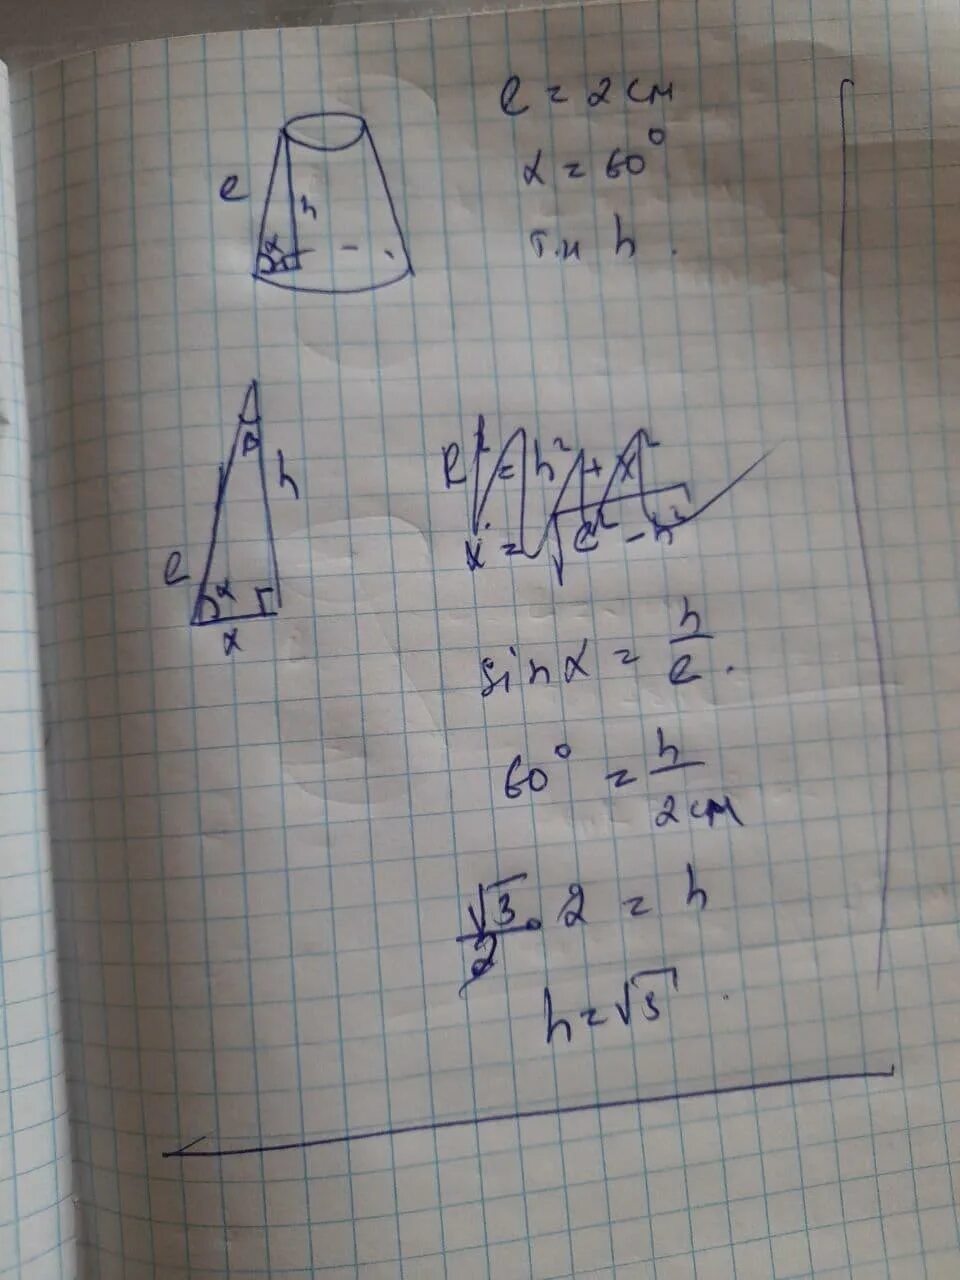 l = 2 см
α = 60°
l
h
α
Т.н h.
l
h
α
x
l² = h² + x²
x = √l² - h²
sin α = h/l.
60° = h/2 см
√3/2 · 2 = h
h = √3